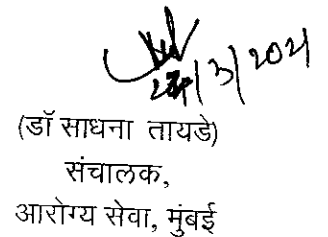 24/3/2021
(डॉ साधना तायडे)
संचालक,
आरोग्य सेवा, मुंबई